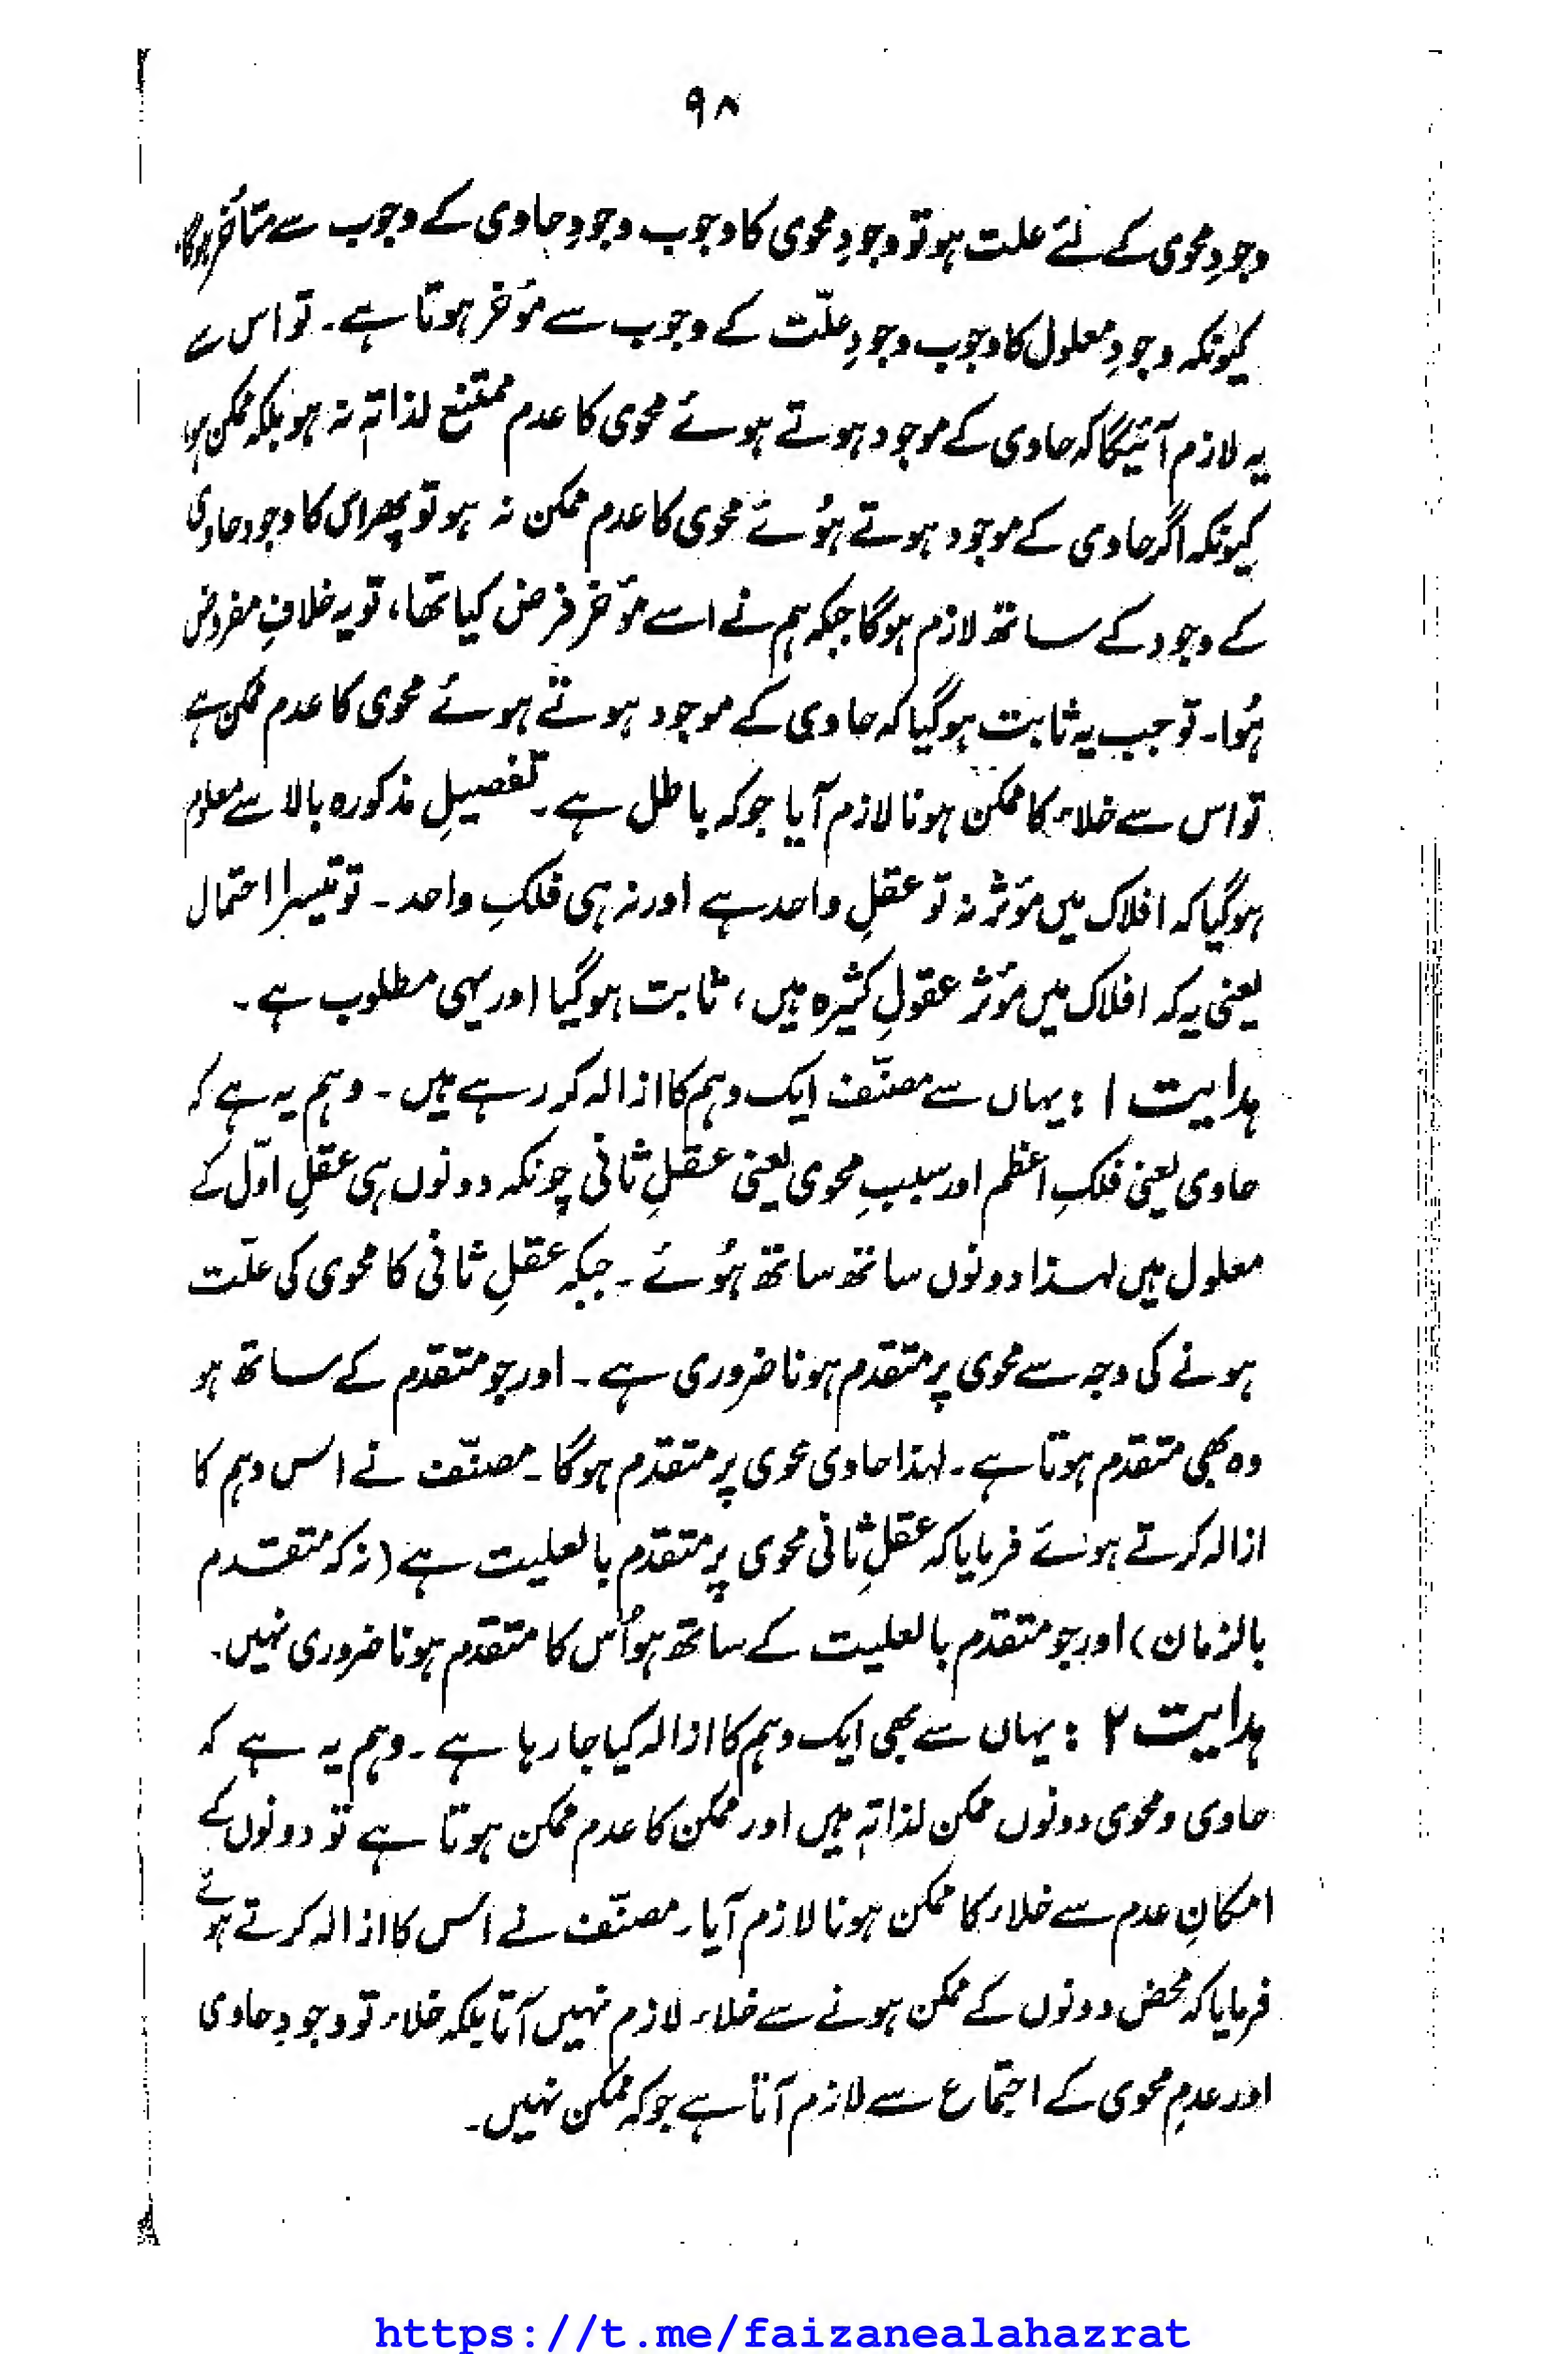 ۹۸
وجودِ محوی کے لئے علت ہو تو وجودِ محوی کا وجوب وجودِ حاوی کے وجوب سے متأخر ہوگا،
کیونکہ وجودِ معلول کا وجوب وجودِ علّت کے وجوب سے مؤخر ہوتا ہے۔ تو اس سے
یہ لازم آئیگا کہ حاوی کے موجود ہوتے ہوئے محوی کا عدم ممتنع لذاتہٖ نہ ہو بلکہ ممکن ہو،
کیونکہ اگر حاوی کے موجود ہوتے ہُوئے محوی کا عدم ممکن نہ ہو تو پھر اس کا وجود حاوی
کے وجود کے ساتھ لازم ہوگا جبکہ ہم نے اسے مؤخر فرض کیا تھا، تو یہ خلافِ مفروض
ہُوا۔ تو جب یہ ثابت ہوگیا کہ حاوی کے موجود ہوتے ہوئے محوی کا عدم ممکن ہے
تو اس سے خلاء کا ممکن ہونا لازم آیا جو کہ باطل ہے۔ تفصیلِ مذکورہ بالا سے معلوم
ہوگیا کہ افلاک میں مؤثر نہ تو عقلِ واحد ہے اور نہ ہی فلکِ واحد۔ تو تیسرا احتمال
یعنی یہ کہ افلاک میں مؤثر عقولِ کثیرہ ہیں، ثابت ہوگیا اور یہی مطلوب ہے۔
ہدایت ۱ : یہاں سے مصنّف ایک وہم کا ازالہ کر رہے ہیں۔ وہم یہ ہے کہ
حاوی یعنی فلکِ اعظم اور سببِ محوی یعنی عقلِ ثانی چونکہ دونوں ہی عقلِ اوّل کے
معلول ہیں لہٰذا دونوں ساتھ ساتھ ہُوئے۔ جبکہ عقلِ ثانی کا محوی کی علّت
ہونے کی وجہ سے محوی پر متقدم ہونا ضروری ہے۔ اور جو متقدم کے ساتھ ہو
وہ بھی متقدم ہوتا ہے۔ لہذا حاوی محوی پر متقدّم ہوگا۔ مصنّف نے اس وہم کا
ازالہ کرتے ہوئے فرمایا کہ عقلِ ثانی محوی پر متقدّم بالعلیت ہے (نہ کہ متقدم
بالزمان) اور جو متقدّم بالعلیت کے ساتھ ہو اُس کا متقدم ہونا ضروری نہیں۔
ہدایت ۲ : یہاں سے بھی ایک وہم کا ازالہ کیا جا رہا ہے۔ وہم یہ ہے کہ
حاوی و محوی دونوں ممکن لذاتہٖ ہیں اور ممکن کا عدم ممکن ہوتا ہے تو دونوں کے
امکانِ عدم سے خلاء کا ممکن ہونا لازم آیا۔ مصنّف نے اس کا ازالہ کرتے ہوئے
فرمایا کہ محض دونوں کے ممکن ہونے سے خلاء لازم نہیں آتا بلکہ خلاء تو وجودِ حاوی
اور عدمِ محوی کے اجتماع سے لازم آتا ہے جو کہ ممکن نہیں۔
https://t.me/faizanealahazrat